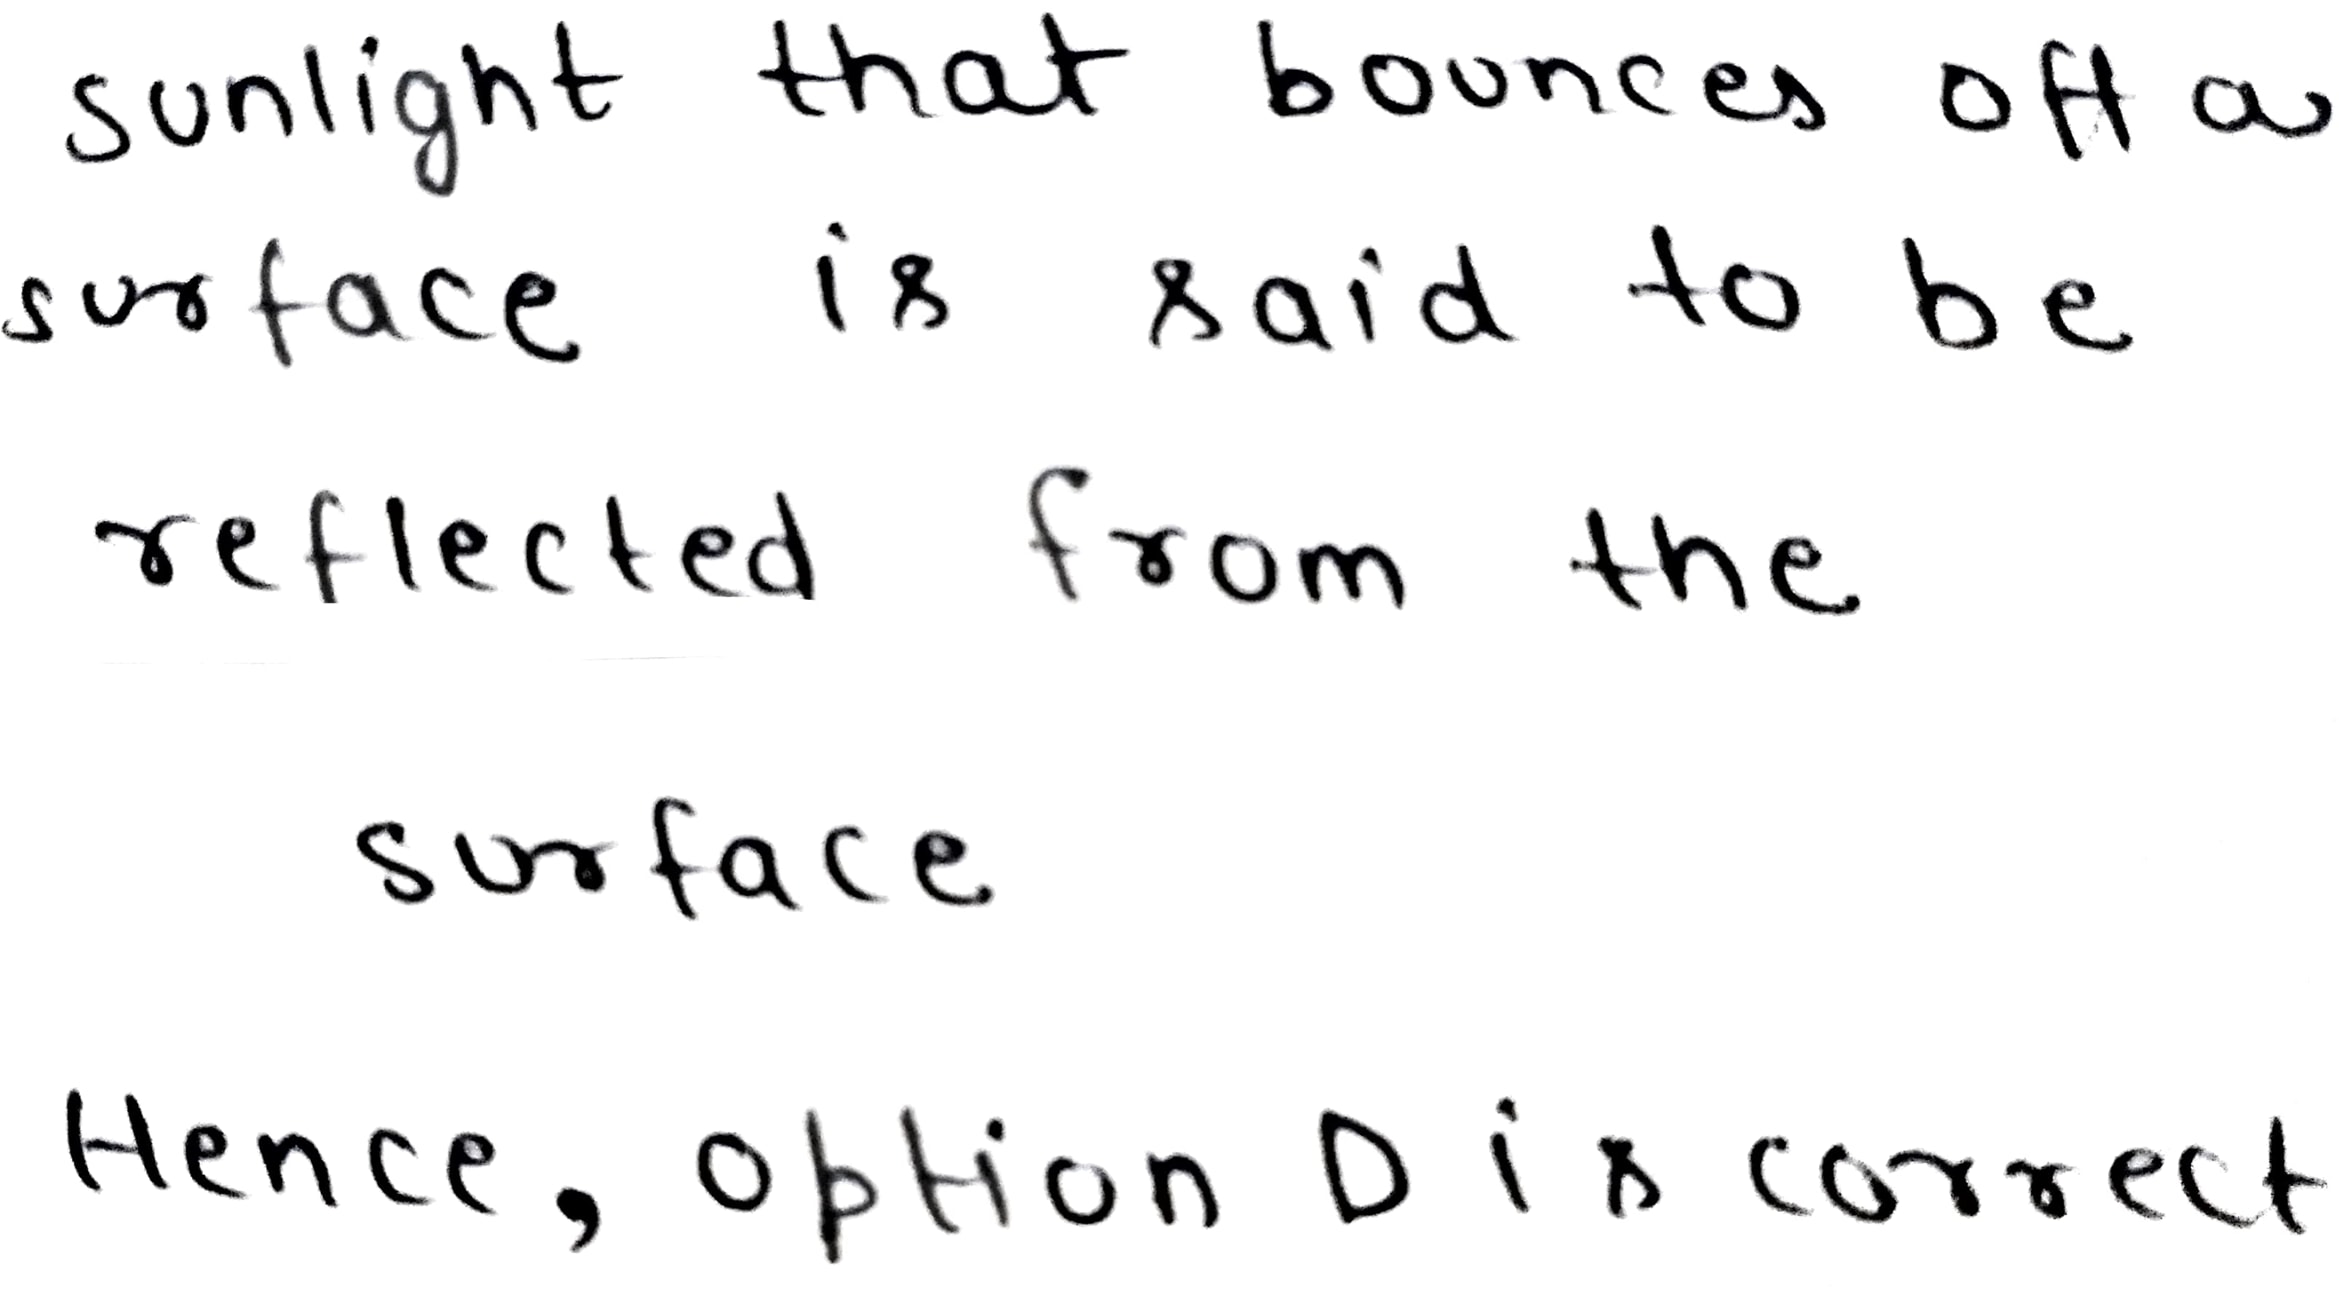 sunlight that bounces off a
surface is said to be
reflected from the
surface
Hence, option D is correct